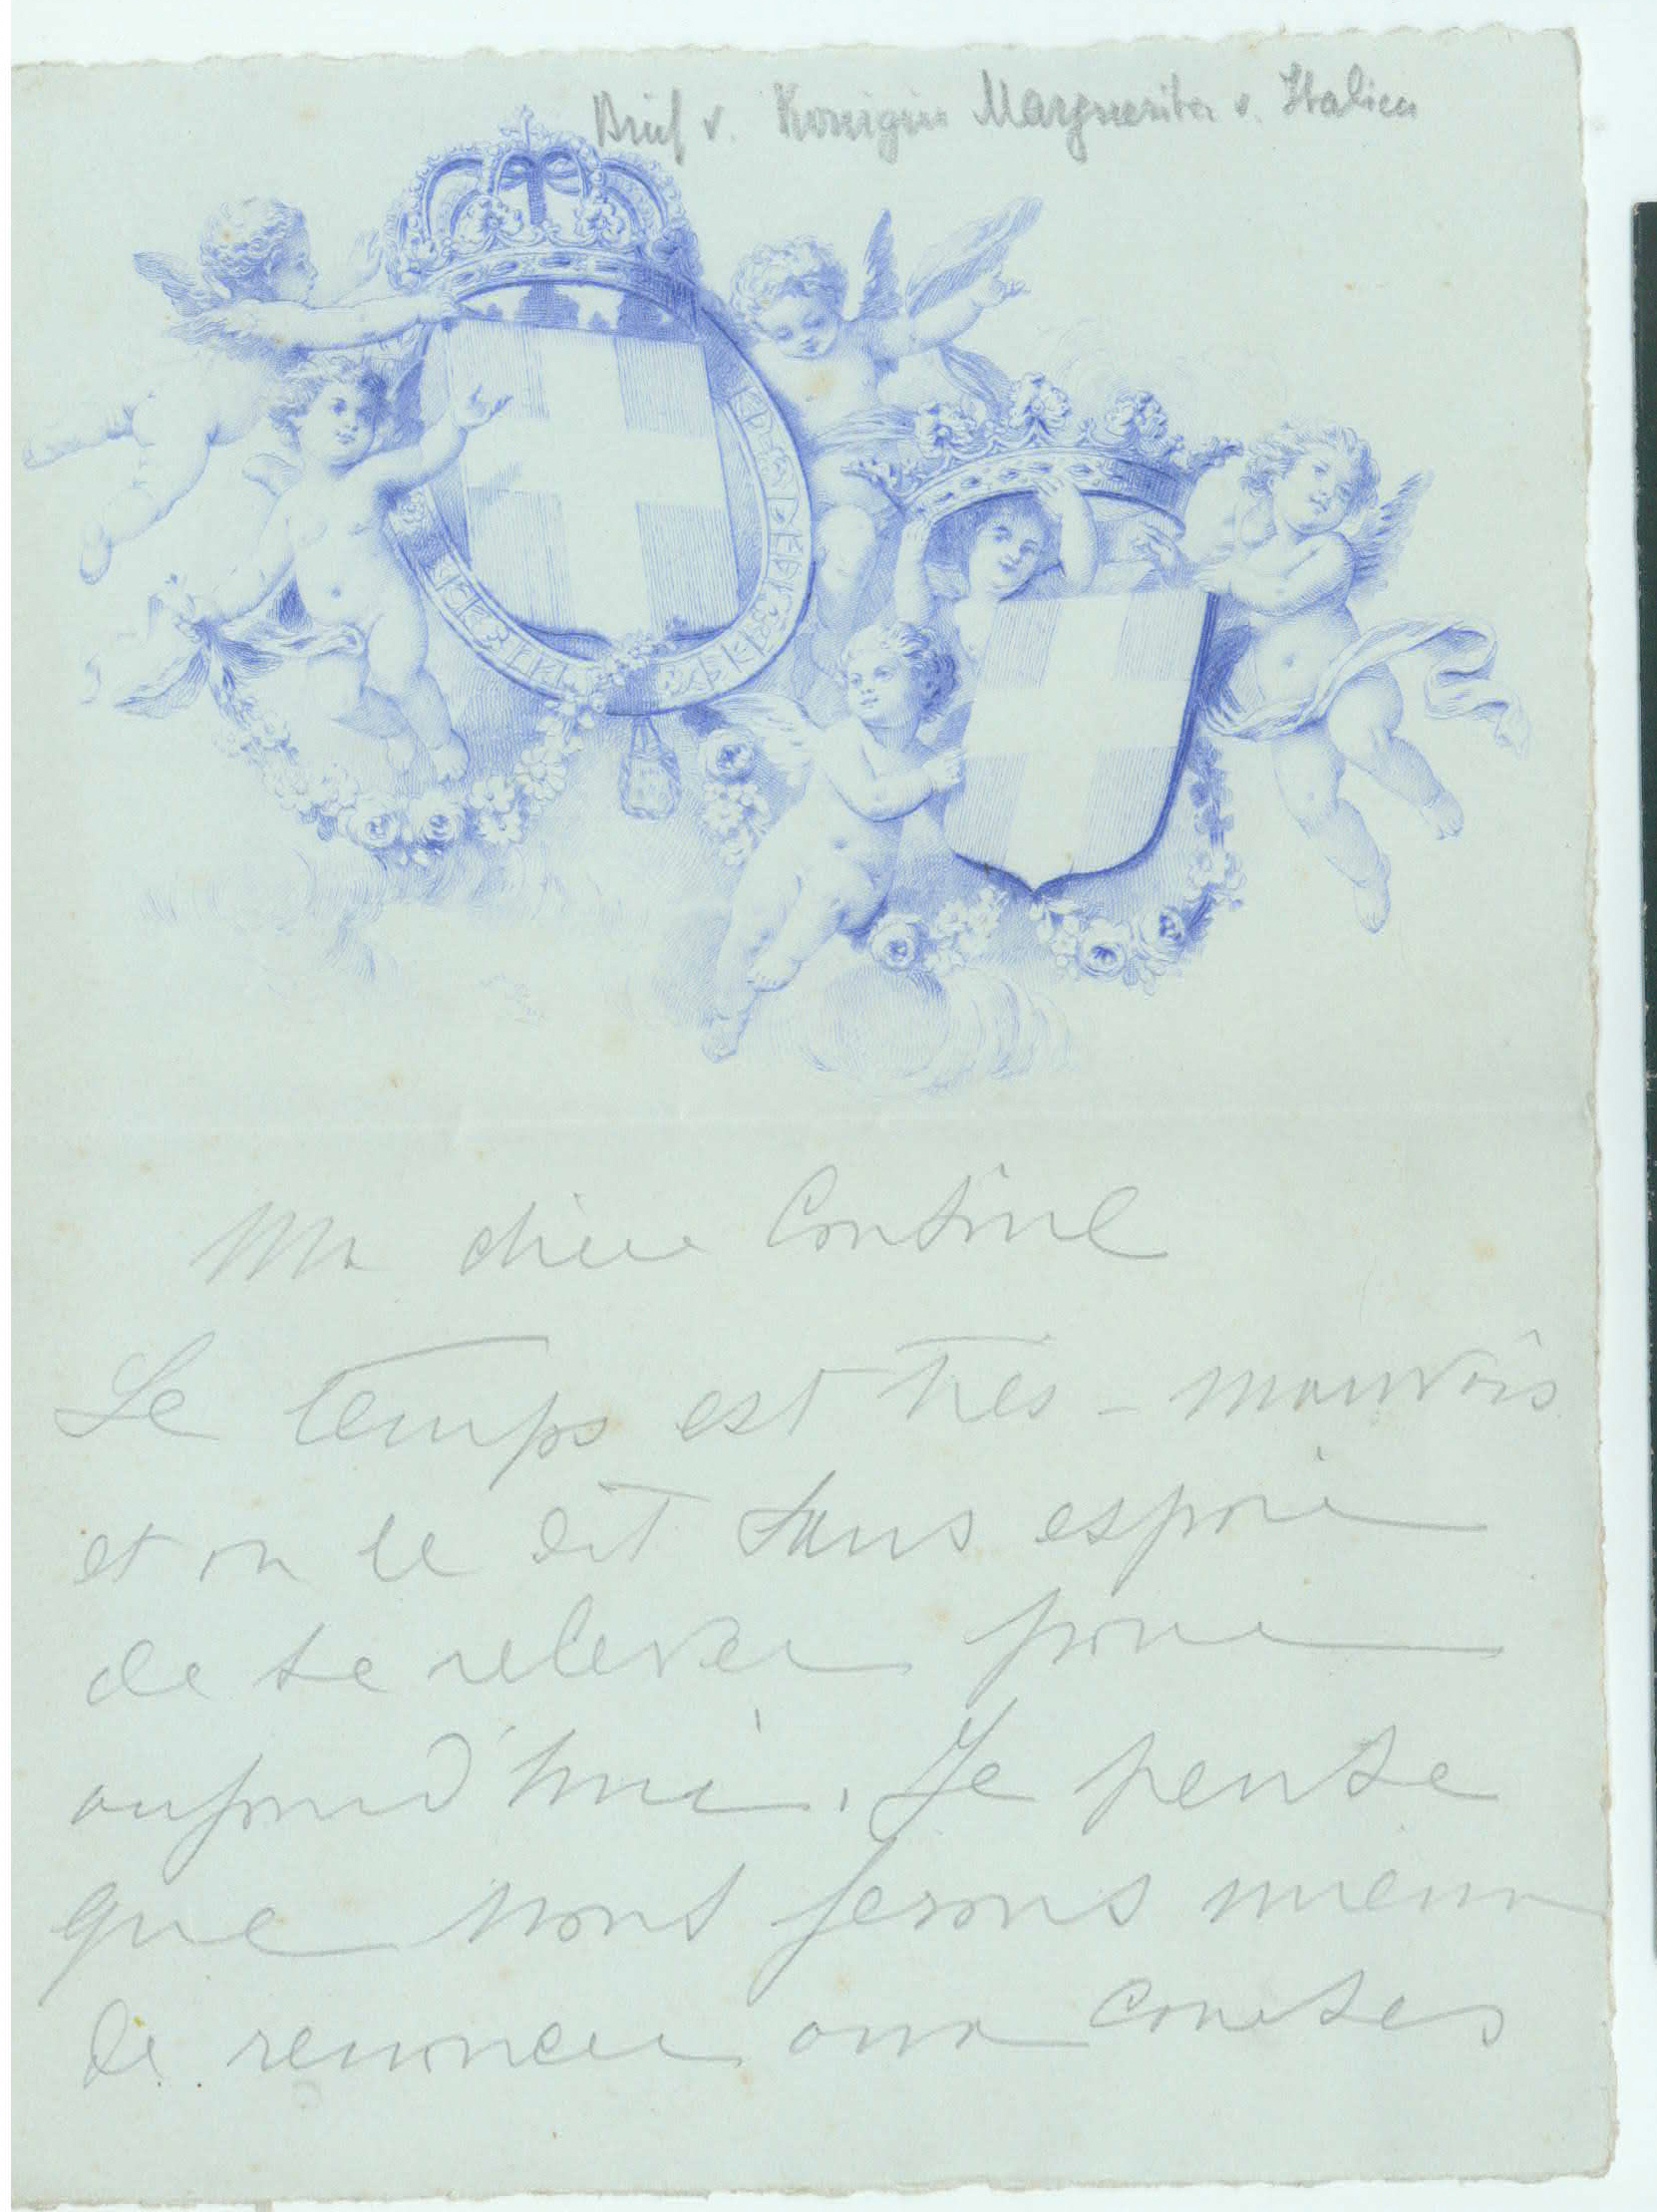 Brief v. Königin Marguerita v. Italien
Ma chère
Le temps est très-mauvais
et on le dit sans espoir
de se relever pour
aujourd'hui. Je pense
que nous ferons mieux
de renoncer aux courses